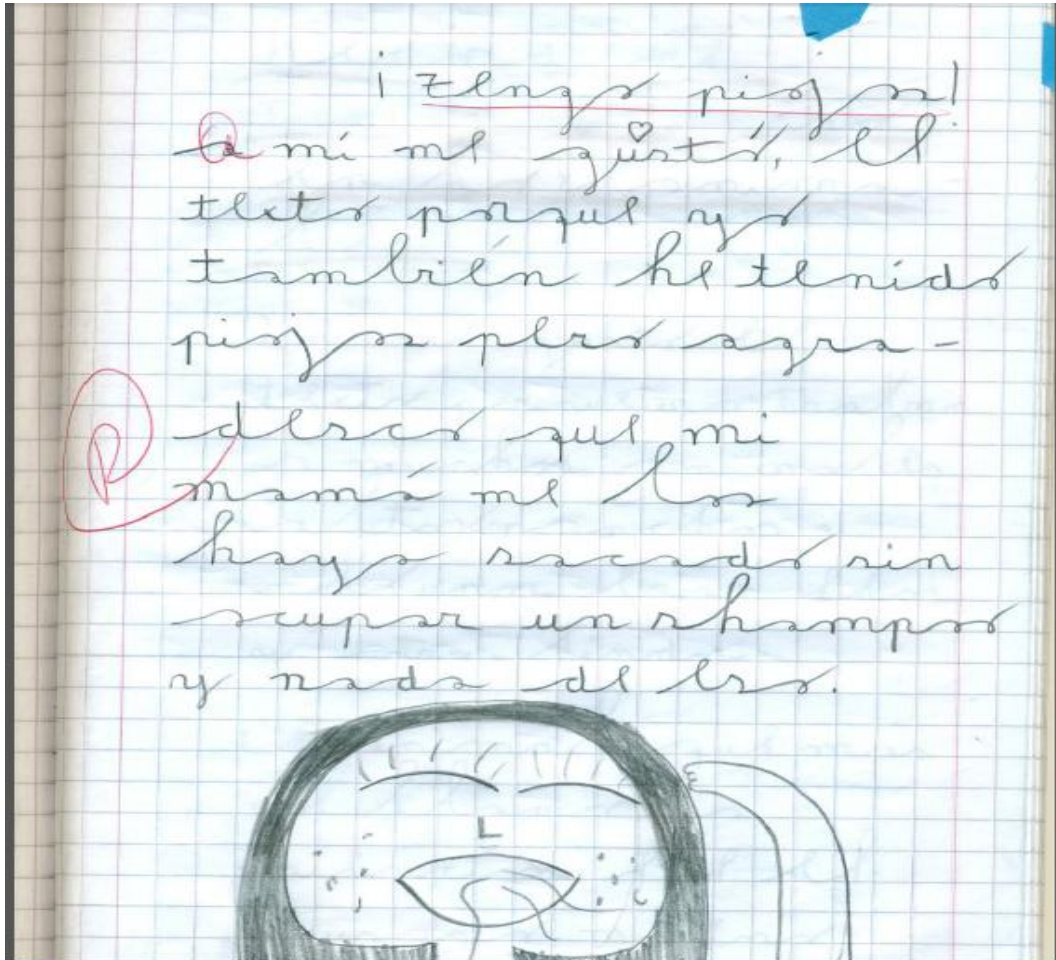 ¡Tengo piojos!
a mí me gustó, el
texto porque yo
también he tenido
piojos pero agra-
desco que mi
mamá me los
haya sacado sin
ocupar un shampoo
y nada de eso.
R